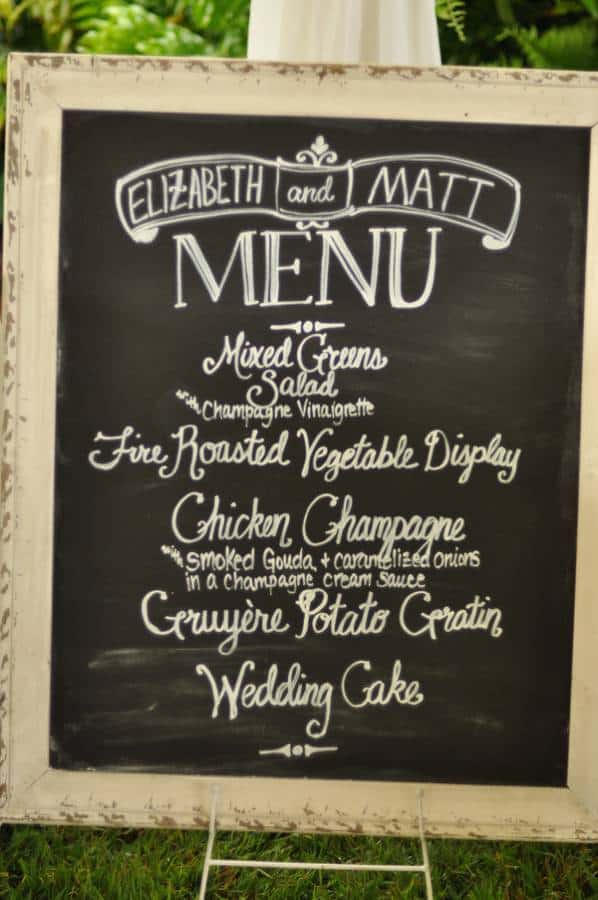 ELIZABETH and MATT
MENU
Mixed Greens
Salad
with Champagne Vinaigrette
Fire Roasted Vegetable Display
Chicken Champagne
with smoked Gouda + caramelized onions
in a champagne cream sauce
Gruyère Potato Gratin
Wedding Cake